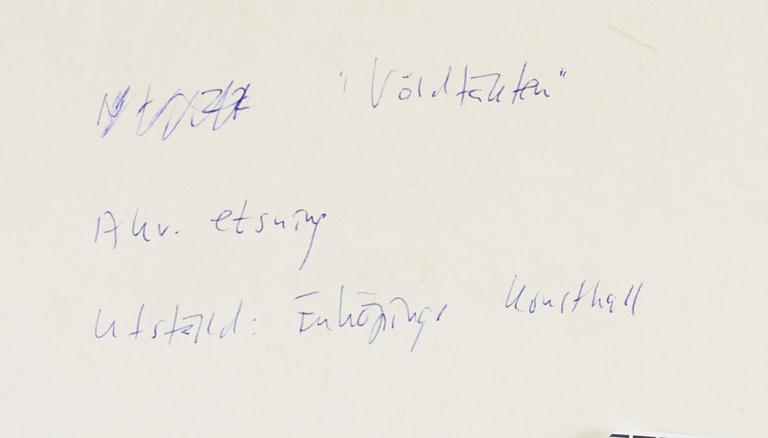 "Våldtäkten"
Akv. etsning
Utställd: Enköpings Konsthall